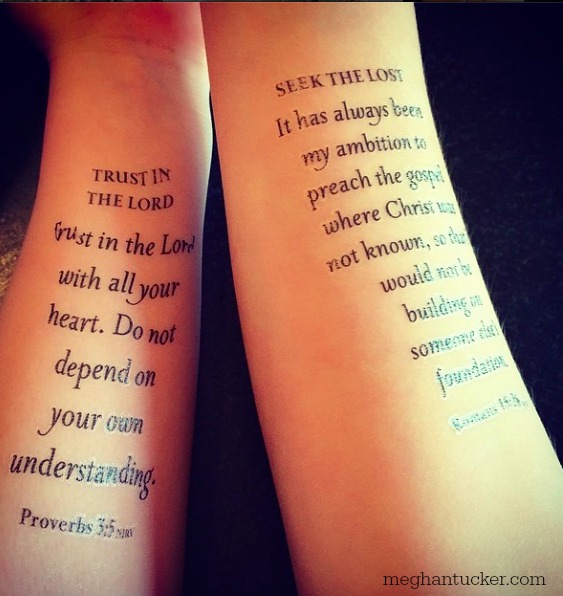 TRUST IN
THE LORD
Trust in the Lord
with all your
heart. Do not
depend on
your own
understanding.
Proverbs 3:5 NIRV
SEEK THE LOST
It has always been
my ambition to
preach the gospel
where Christ was
not known, so that
would not be
building on
someone else's
foundation.
Romans 15:20
meghantucker.com